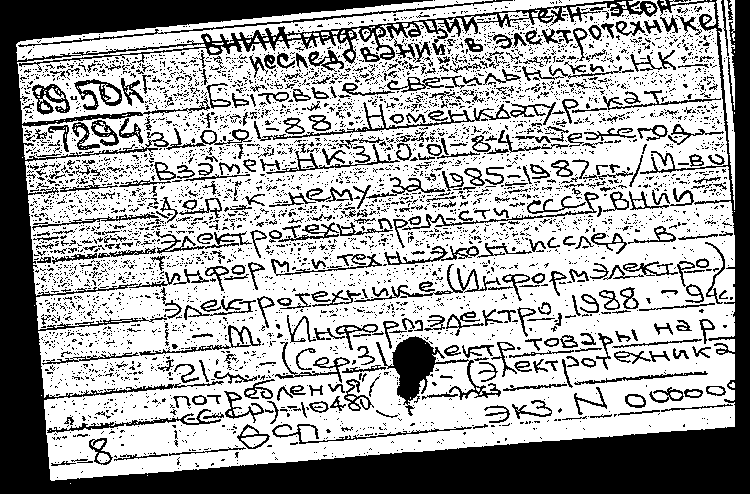 ВНИИ информации и техн.-экон.
исследований в электротехнике
89-5DK
7294
Бытовые светильники: НК
31.0.01-88: Номенклатур. кат.:
Взамен НК 31.0.01-84 и ежегод.
доп. к нему за 1985-1987 гг. / М-во
электротехн. пром-сти СССР, ВНИИ
информ. и техн.-экон. исслед. в
электротехнике (Информэлектро)
. - М.: Информэлектро, 1988. - 94 с.
21 см. - (Сер. 31 электр. товары нар.
потребления) - (Электротехника
СССР). - 10480
экз. N 000009
8
ДСП.